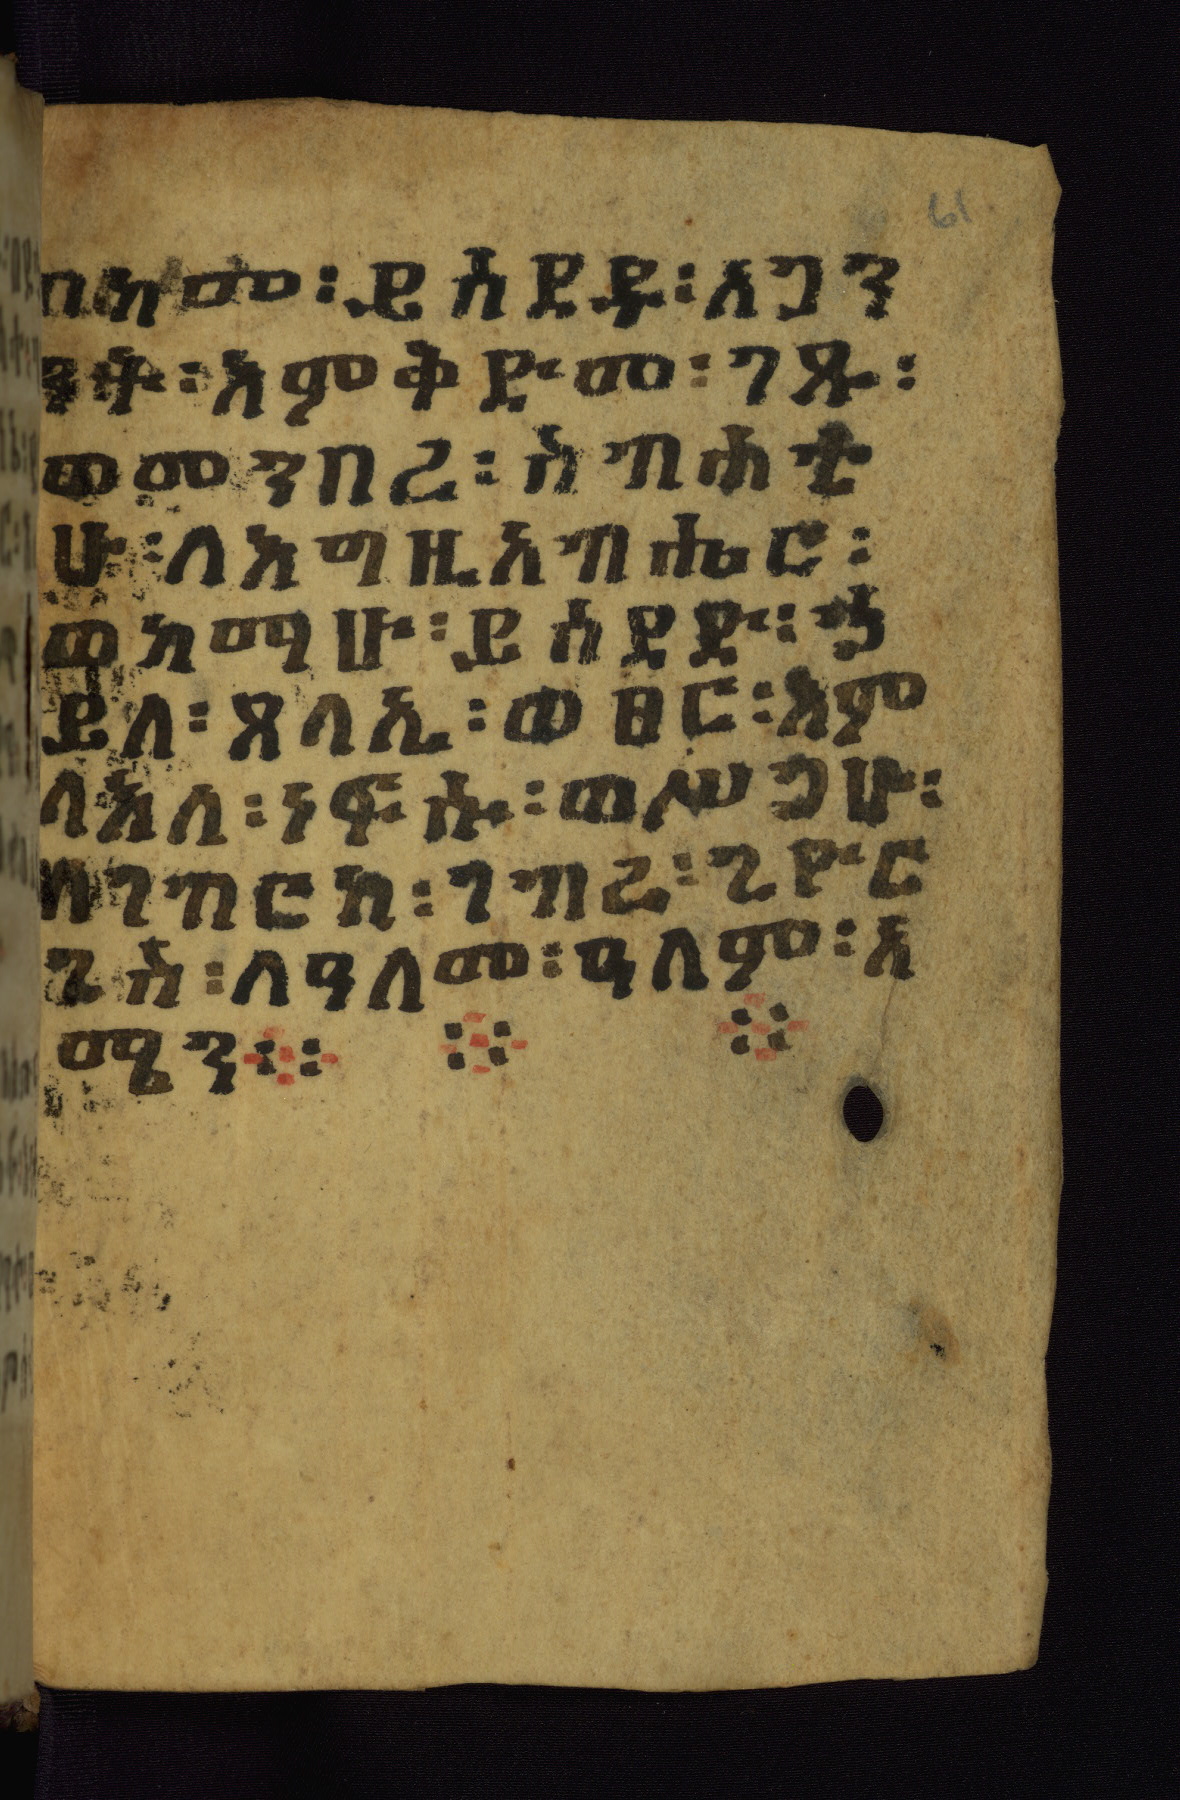 61
በከመ፡ይሰደዱ፡አጋን
ንት፡እምቅድመ፡ገጹ፡
ወመንበረ፡ስብሐቲ
ሁ፡ለእግዚአብሔር፡
ወከማሁ፡ይሰደድ፡ኃ
ይለ፡ጸላኢ፡ወፀር፡እም
ላእለ፡ነፍሱ፡ወሥጋሁ፡
ለገብርከ፡ገብረ፡ጊዮር
ጊስ፡ለዓለመ፡ዓለም፡አ
ሜን፡፡ ፡፡ ፡፡